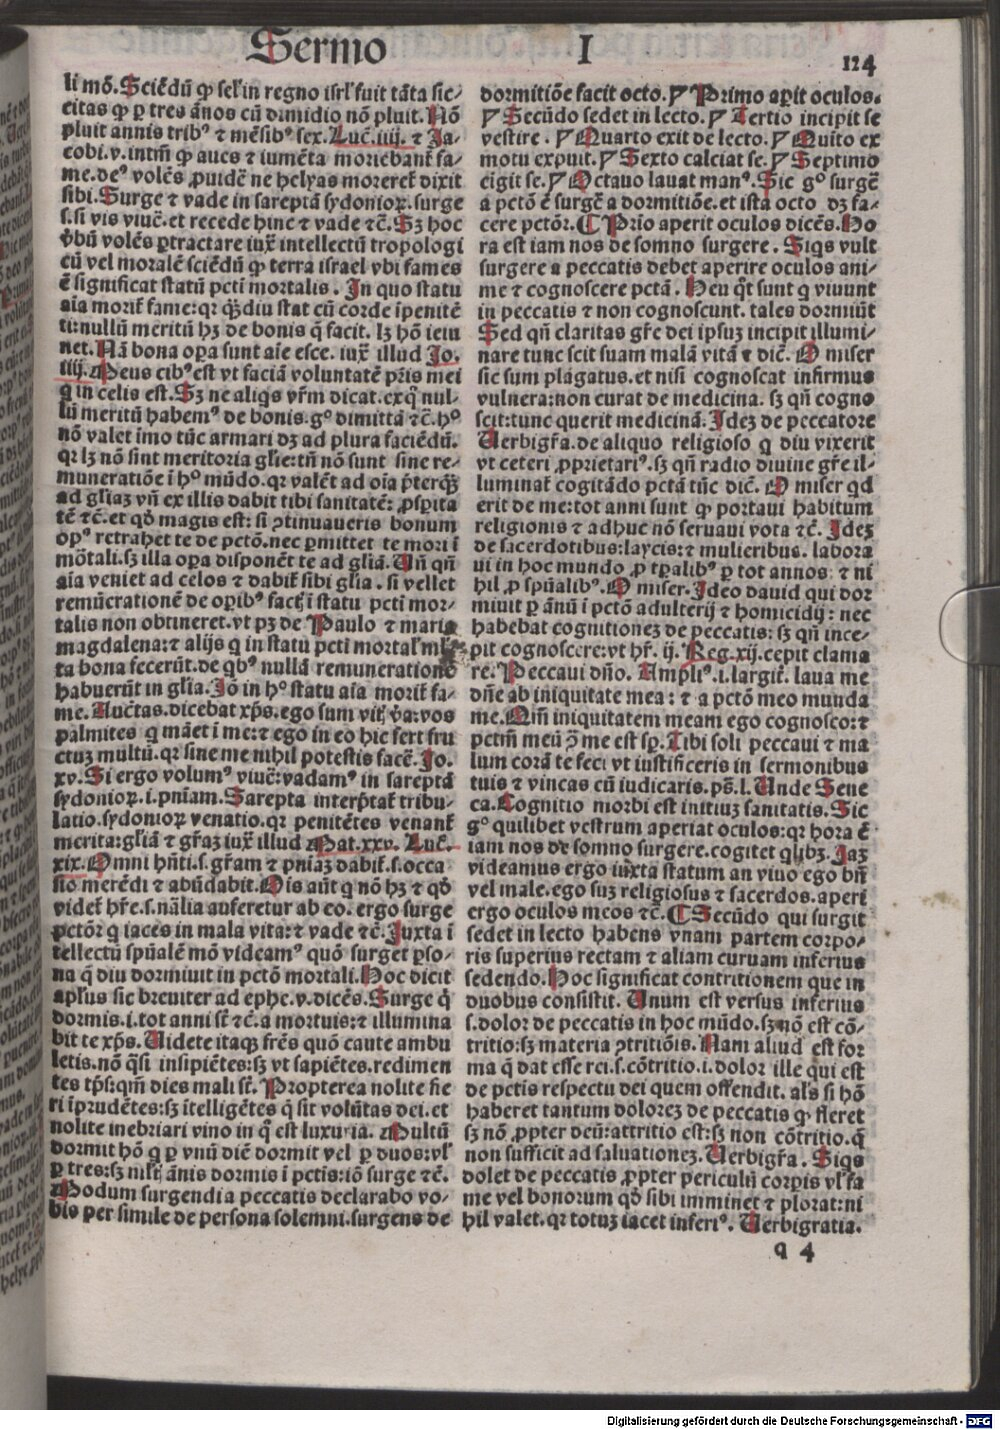 Sermo I 124
li mõ. Sciẽdũ ꝙ sel'in regno isrl'fuit tãta sic⸗
citas ꝙ ꝑ tres ãnos cũ dimidio nõ pluit. Nõ
pluit annis tribꝰ ⁊ mẽsibꝰ sex. Luč.iiij. ⁊ Ja⸗
cobi.v.intm̃ ꝙ aues ⁊ iumẽta moriebant̃ fa⸗
me.deꝰ volẽs ꝓuidẽ ne helyas morereť dixit
sibi. Surge ⁊ vade in sareptã sydonioꝝ. surge
s.si vis viuẽ.et recede hinc ⁊ vade ⁊č. Sꝫ hoc
ṽbũ volẽs ꝑtractare iux̃ intellectũ tropologi
cũ vel moralẽ sciẽdũ ꝙ terra israel vbi fames
ẽ significat statũ pcti mortalis. In quo statu
aĩa moriť fame: qr ꝙ̃diu stat cũ corde ĩpenitẽ
ti:nullũ meritũ hꝫ de bonis q̃ facit. lꝫ hõ ieiu
net. Nã bona oꝑa sunt aĩe esce. iux̃ illud Jo.
iiij. Meus cibꝰ est vt faciã voluntatẽ pr̃is mei
q in celis est. Sꝫ ne aliqs vr̃m dicat.exq̃ nul⸗
lũ meritũ habemꝰ de bonis.gͦ dimittã ⁊č.hͦ
nõ valet imo tũc armari dꝫ ad plura faciẽdũ.
qr lꝫ nõ sint meritoria gl'ie:tñ nõ sunt sine re⸗
muneratiõe ĩ hͦ mũdo.qr valẽt ad oĩa p̃terꝙ̃
ad gl'iaꝫ vñ ex illis dabit tibi sanitatẽ: ꝓsꝑita
tẽ ⁊č.et qð magis est: si ꝯtinuaueris bonum
opꝰ retrahet te de pctõ.nec ꝑmittet te mori ĩ
mõtali.sꝫ illa oꝑa disponẽt te ad gl'iã. Vñ qñ
aĩa veniet ad celos ⁊ dabiť sibi gl'ia. si vellet
remũerationẽ de oꝑibꝰ factꝭ ĩ statu pcti mor⸗
talis non obtineret.vt pꝫ de Paulo ⁊ maria
magdalena:⁊ alijs q in statu pcti mortal' ml'
ta bona fecerũt.de qbꝰ nullã remunerationẽ
habuerũt in gl'ia. Jõ in hͦ statu aĩa moriť fa⸗
me. Auctas.dicebat xp̃s.ego sum vitꝭ ṽa:vos
palmites q mãet ĩ me:⁊ ego in eo hic fert fru
ctuꝫ multũ.qr sine me nihil potestis facẽ. Jo.
xv. Si ergo volumꝰ viuẽ:vadamꝰ in sareptã
sydonioꝝ.i.pniam. Sarepta interp̃tať tribu⸗
latio.sydonioꝝ venatio.qr penitẽtes venant̃
merita:gl'iã ⁊ gr̃aꝫ iux̃ illud Mat.xxv. Luč.
xix. Omni hñti.s.gr̃am ⁊ pniaꝫ dabiť.s.occa⸗
sio merẽdi ⁊ abũdabit. Ois aũt q nõ hꝫ ⁊ qð
videť hr̃e.s.nãlia auferetur ab eo. ergo surge
pctõr q iaces in mala vita:⁊ vade ⁊č. Juxta ĩ
tellectũ spũalẽ mõ videamꝰ quõ surget ꝑso⸗
na q̃ diu dormiuit in pctõ mortali. Hoc dicit
apl'us sic breuiter ad ephe.v.dicẽs. Surge q̃
dormis.i.tot anni sť ⁊č.a mortuis:⁊ illumina
bit te xp̃s. Uidete itaqꝫ fr̃es quõ caute ambu
letis.nõ q̃si insipiẽtes:sꝫ vt sapiẽtes.redimen
tes tp̃s:qm̃ dies mali sť. Propterea nolite fie
ri ĩprudẽtes:sꝫ ĩtelligẽtes q̃ sit volũtas dei.et
nolite inebriari vino in q̃ est luxuria. Multũ
dormit hõ q ꝑ vnũ diẽ dormit vel ꝑ duos:vl'
ꝑ tres:sꝫ ml'tꝭ ãnis dormis ĩ pctis:iõ surge ⁊č.
Modum surgendi a peccatis declarabo vo⸗
bis per simile de persona solemni.surgens de
dormitiõe facit octo. Primo aꝑit oculos.
Secũdo sedet in lecto. Tertio incipit se
vestire. Quarto exit de lecto. Quito ex
motu expuit. Sexto calciat se. Septimo
cĩgit se. Octauo lauat manꝰ. Sic gͦ surgẽ
a pctõ ẽ surgẽ a dormitiõe.et ista octo dꝫ fa⸗
cere pctõr. Prĩo aperit oculos dicẽs. Ho
ra est iam nos de somno surgere. Siqs vult
surgere a peccatis debet aperire oculos ani⸗
me ⁊ cognoscere pctã. Heu q̃t sunt q viuunt
in peccatis ⁊ non cognoscunt. tales dormiũt
Sed qñ claritas gr̃e dei ipsuꝫ incipit illumi⸗
nare tunc scit suam malã vitã ⁊ dič. O miser
sic sum plagatus.et nisi cognoscat infirmus
vulnera:non curat de medicina. sꝫ qñ cogno
scit:tunc querit medicinã. Jdeꝫ de peccatore
Uerbigr̃a.de aliquo religioso q diu vixerit
vt ceteri ꝓprietariꝰ.sꝫ qñ radio diuine gr̃e il⸗
luminať cogitãdo pctã tũc dič. O miser qd
erit de me:tot anni sunt ꝙ portaui habitum
religionis ⁊ adhuc nõ seruaui vota ⁊č. Jdeꝫ
de sacerdotibus:laycis:⁊ mulieribus. labora
ui in hoc mundo ꝓ tꝑalibꝰ ꝑ tot annos ⁊ ni
hil ꝓ spũalibꝰ. O miser. Jdeo dauid qui dor
miuit ꝑ ãnũ ĩ pctõ adulterij ⁊ homicidij: nec
habebat cognitioneꝫ de peccatis: sꝫ qñ ince⸗
pit cognoscere:vt hr̃. ij. Reg.xij.cepit clama
re. Peccaui dño. Ampliꝰ.i.largiť. laua me
dñe ab iniquitate mea: ⁊ a pctõ meo munda
me. Qm̃ iniquitatem meam ego cognosco:⁊
pctm̃ meũ ꝯ̃ me est sꝑ. Tibi soli peccaui ⁊ ma
lum corã te feci vt iustificeris in sermonibus
tuis ⁊ vincas cũ iudicaris. ps̃.l. Unde Sene
ca. Cognitio morbi est initiuꝫ sanitatis. Sic
gͦ quilibet vestrum aperiat oculos:qr hora ẽ
iam nos de somno surgere.cogitet qlibꝫ. Jaꝫ
videamus ergo iuxta statum an viuo ego bñ
vel male.ego suꝫ religiosus ⁊ sacerdos.aperi
ergo oculos meos ⁊č. Secũdo qui surgit
sedet in lecto habens vnam partem corpo⸗
ris superius rectam ⁊ aliam curuam inferius
sedendo. Hoc significat contritionem que in
duobus consistit. Unum est versus inferius
s.dolor de peccatis in hoc mũdo.sꝫ nõ est cõ⸗
tritio:sꝫ materia ꝯtritiõis. Nam aliud est for
ma q̃ dat esse rei.s.cõtritio.i.dolor ille qui est
de pctis respectu dei quem offendit. al's si hõ
haberet tantum doloreꝫ de peccatis ꝙ fleret
sꝫ nõ ꝓpter deũ:attritio est:sꝫ non cõtritio.q̃
non sufficit ad saluationeꝫ. Uerbigr̃a. Siqs
dolet de peccatis ꝓpter periculũ corꝑis vl' fa
me vel bonorum qð sibi imminet ⁊ plorat:ni
hil valet.qr totuꝫ iacet inferiꝰ. Uerbigratia.
q 4
Digitalisierung gefördert durch die Deutsche Forschungsgemeinschaft - DFG